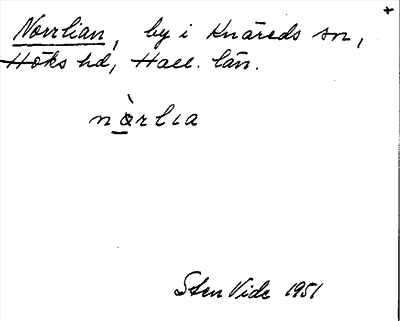 Norrlian, by i Knäreds sn,
Höks hd, Hall. län.
nòrlıa
Sten Vide 1951